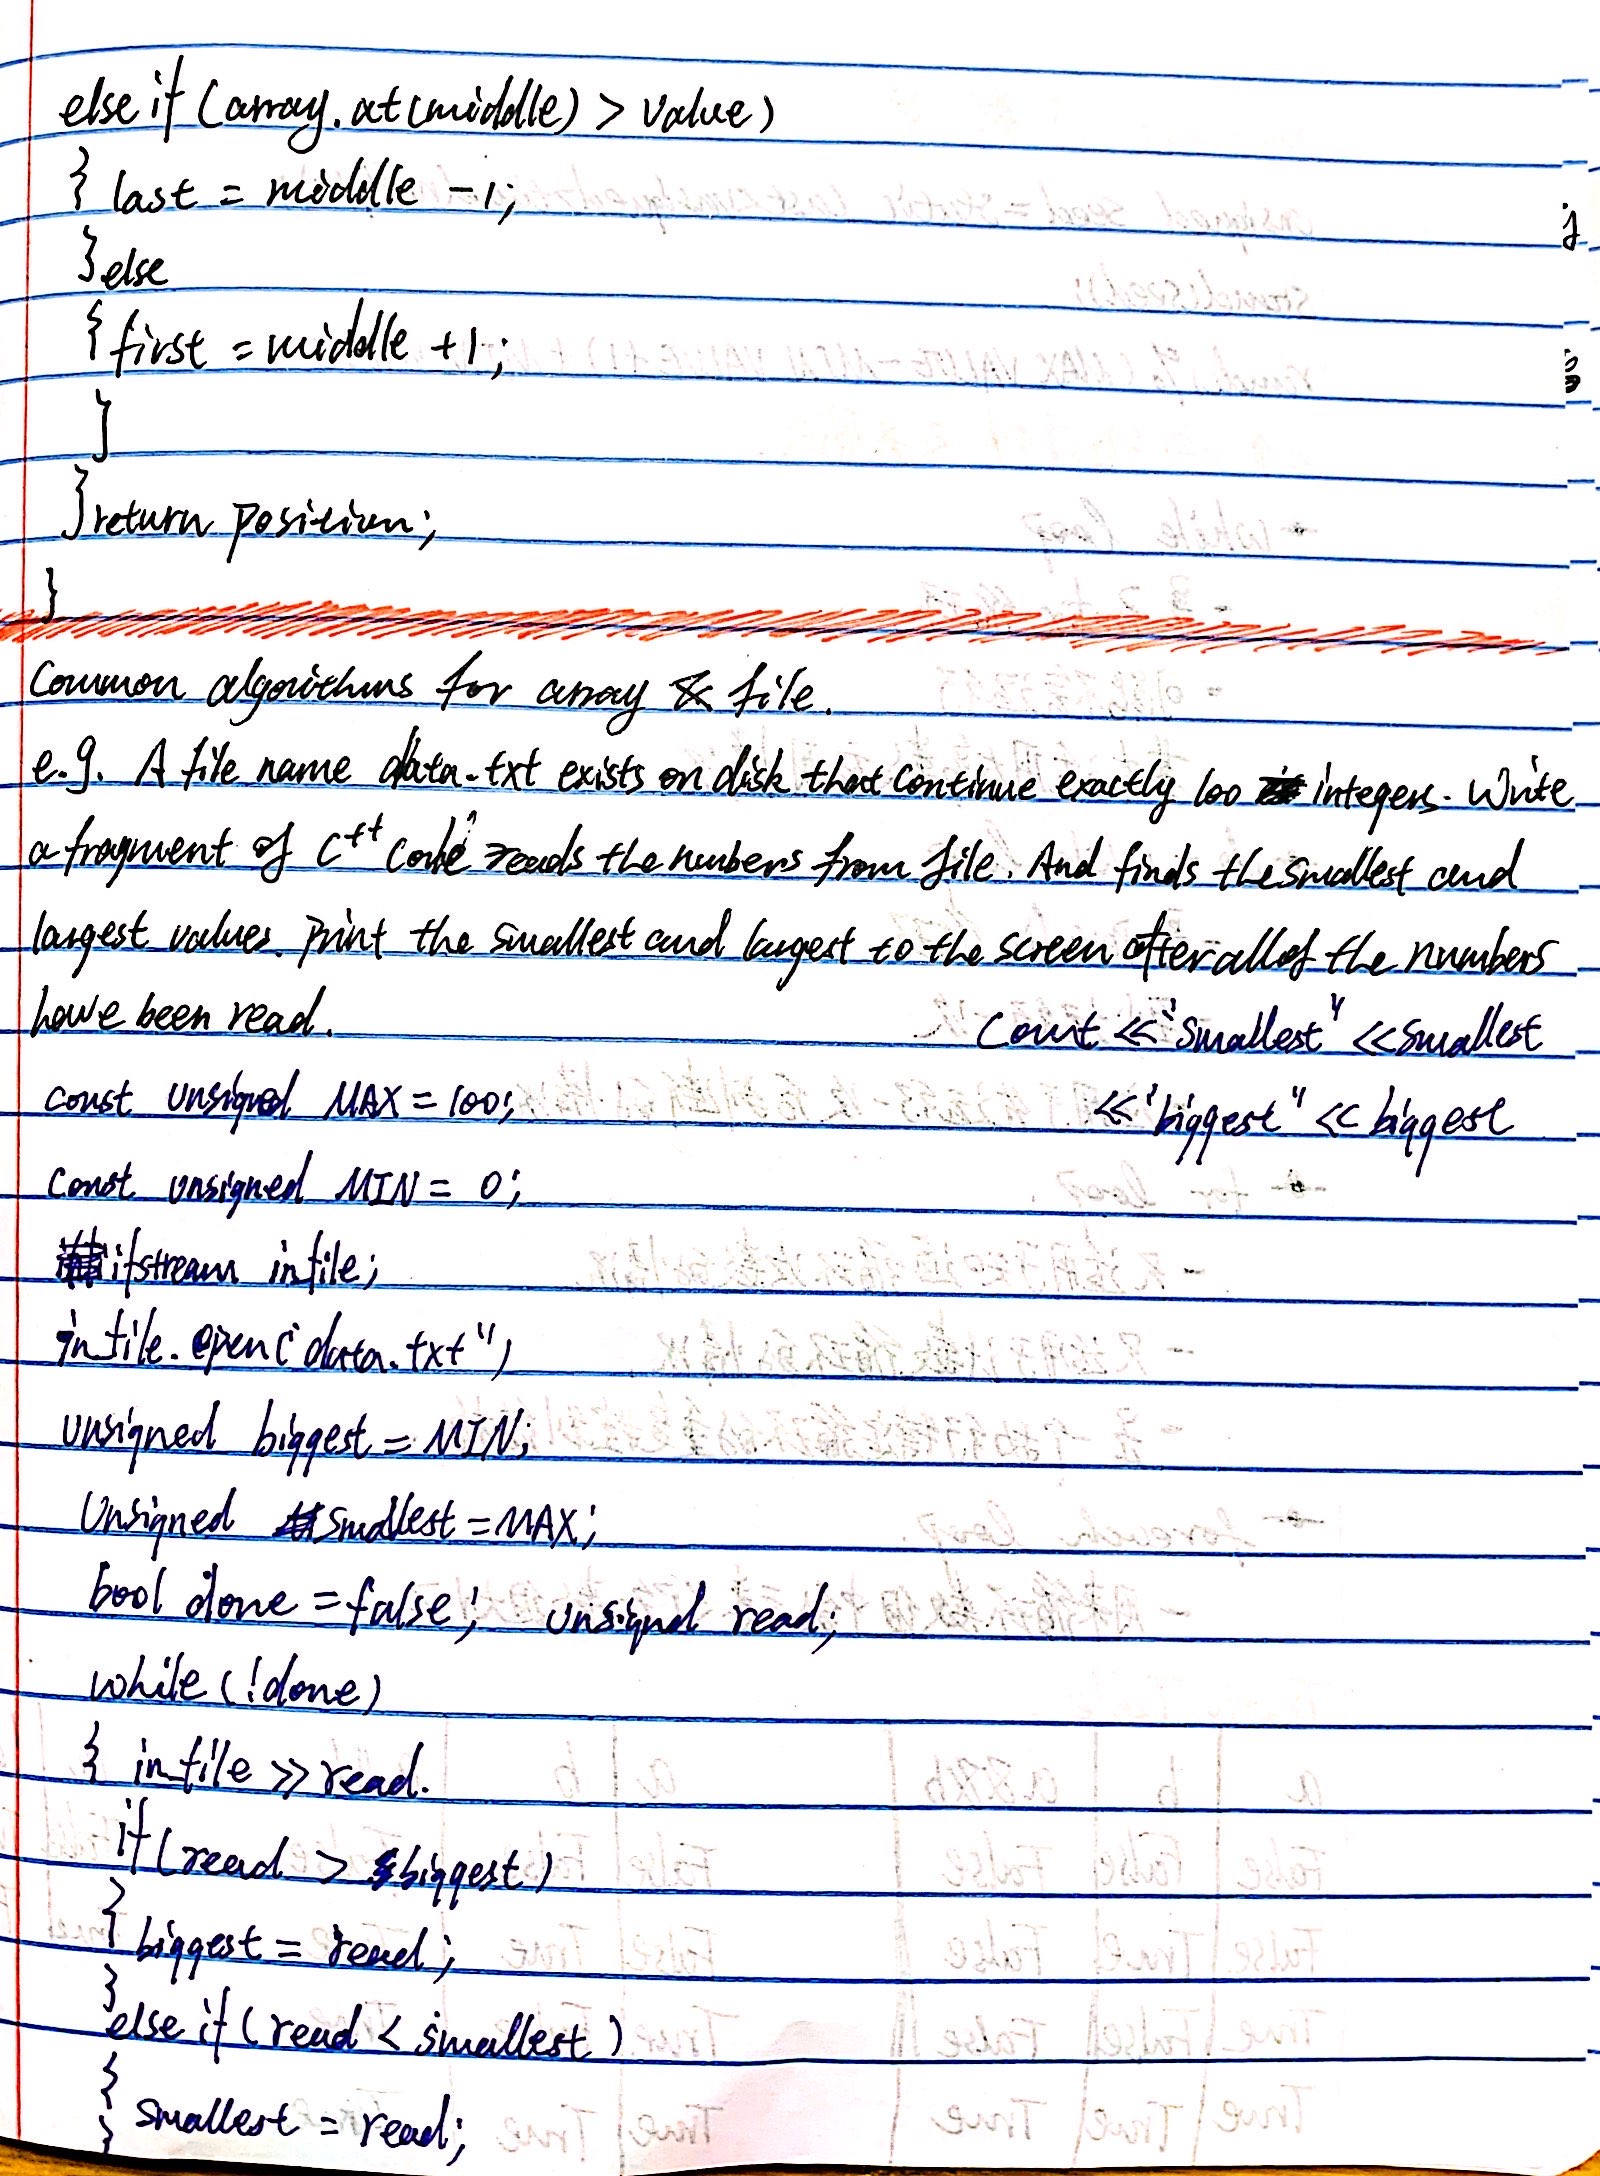 else if (array.at(middle) > value)
{ last = middle -1;
}else
{ first = middle +1;
}
}return position;
}
Common algorithms for array & file.
e.g. A file name data.txt exists on disk that continue exactly 100 integers. Write
a fragment of C++ code reads the numbers from file. And finds the smallest and
largest values. print the smallest and largest to the screen after all of the numbers
have been read.
Cout << "smallest" << smallest
<< "biggest" << biggest
const unsigned MAX = 100;
const unsigned MIN = 0;
ifstream infile;
infile.open("data.txt");
unsigned biggest = MIN;
Unsigned smallest = MAX;
bool done = false; unsignd read;
while (!done)
{ infile >> read.
if (read > biggest)
{ biggest = read;
}
else if (read < smallest)
{ smallest = read;
}